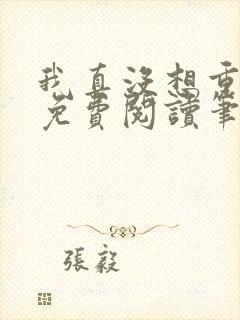 我真没想重
免費閱讀筆
張毅